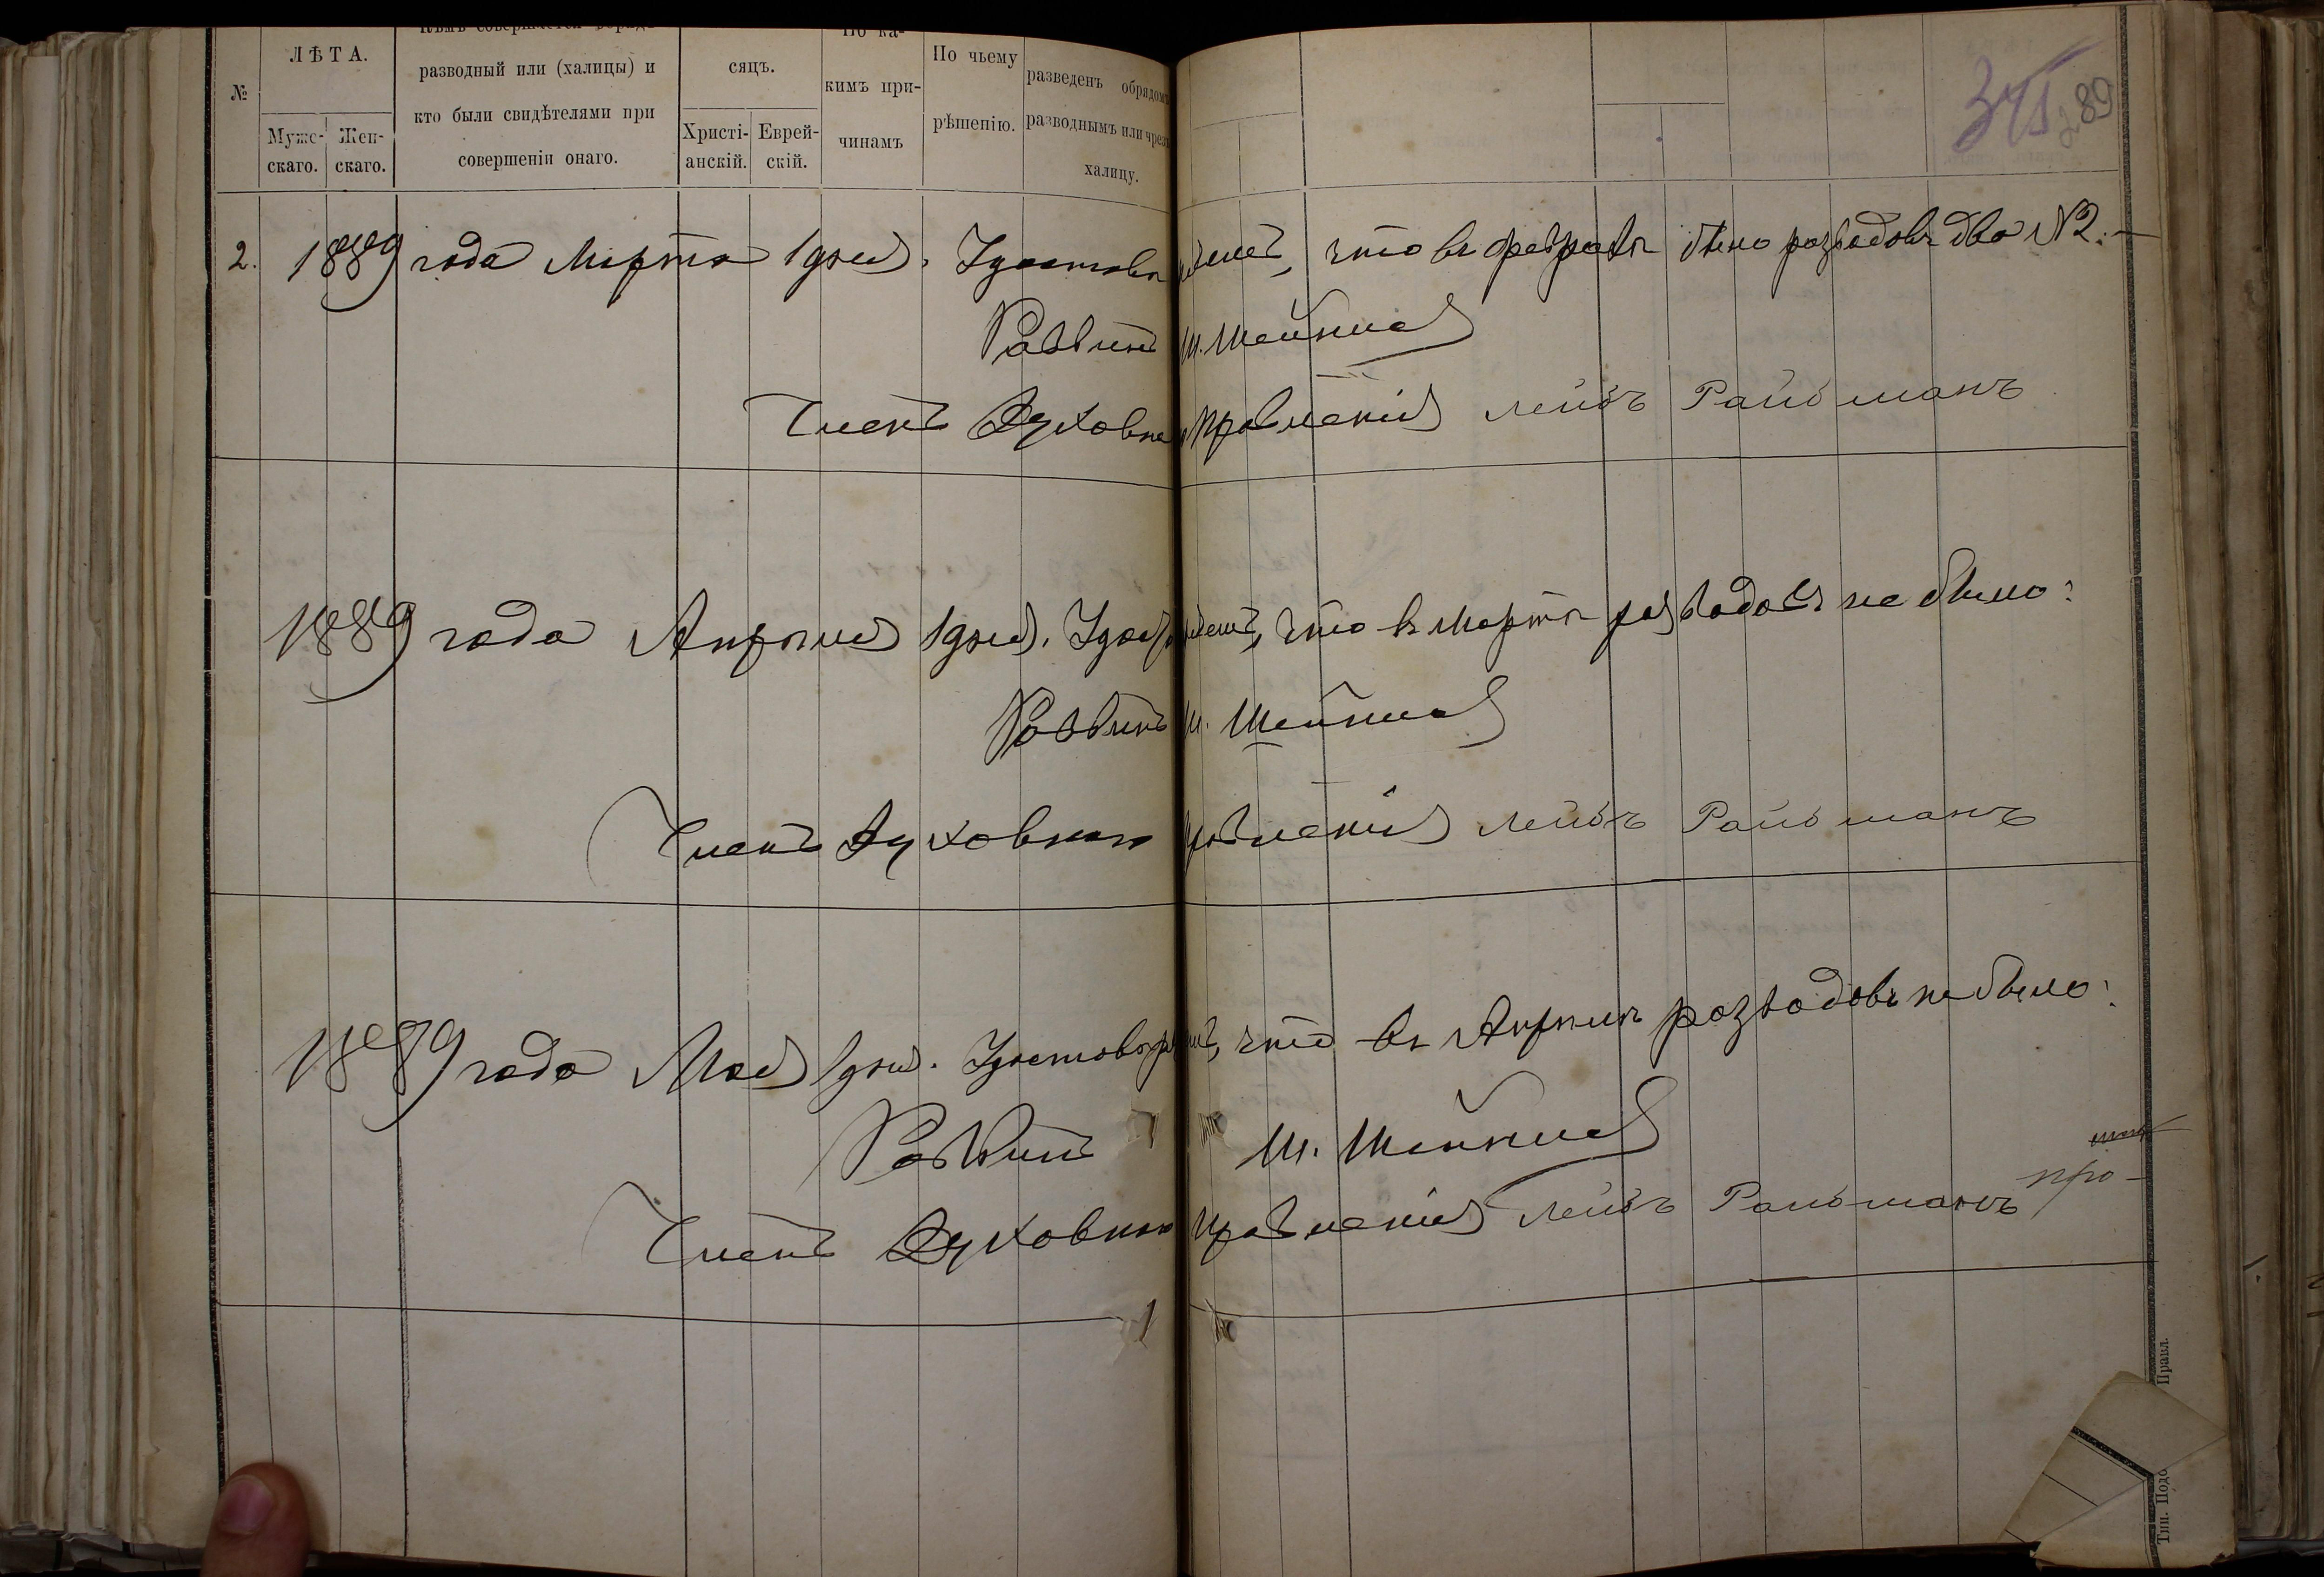 №
ЛѢТА.
Муже-
скаго.
Жен-
скаго.
разводный или (халицы) и
кто были свидѣтелями при
совершеніи онаго.
сяцъ.
Христі-
анскій.
Еврей-
скій.
По ка-
кимъ при-
чинамъ
По чьему
рѣшенію.
разведенъ обрядомъ
разводнымъ или чрезъ
халицу.
89
2. 1889 года Марта 1 дня. что въ февралѣ было разводовъ два №2.
Раввинъ Ш.
Членъ Духовнаго Правленія Лейбъ Райбманъ
1889 года Апрѣля 1 дня. что въ Мартѣ разводовъ не было.
Раввинъ Ш.
Членъ Духовнаго Правленія Лейбъ Райбманъ
1889 года Мая 1 дня. что въ Апрѣлѣ разводовъ не было.
Раввинъ Ш.
про-
Членъ Духовнаго Правленія Лейбъ Райбманъ
Тип. Подо
Правл.